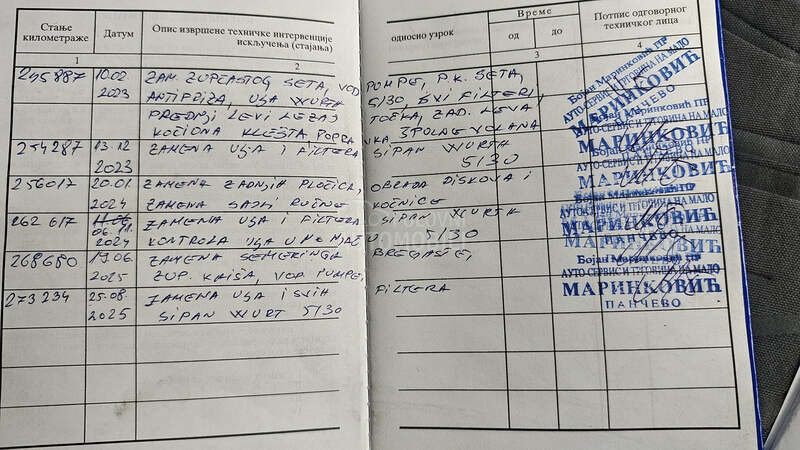 Стање километраже
Датум
Опис извршене техничке интервенције односно узрок искључења (стајања)
Време
од
до
Потпис одговорног техничког лица
1
2
3
4
245887 10.02. 2023 ZAM. ZUPČASTOG SETA, VOD PUMPE, P.K. SETA,
ANTIFRIZA, ULJA WURTH 5/30, SVI FILTERI,
PREDNJI LEVI LEŽAJ TOČKA, ZAD. LEVA
KOČIONA KLEŠTA VOLANA
254287 13.12 2023 ZAMENA ULJA I FILTERA SIPAN WURTH
5/30
256017 20.01. 2024 ZAMENA ZADNJIH PLOČICA, OBRADA DISKOVA I
ZAMENA SAJLI RUČNE KOČNICE
262 617 06.11. 2024 ZAMENA ULJA I FILTERA SIPAN WURTH
KONTROLA ULJA U MENJAČU 5/30
268680 19.06. 2025 ZAMENA SEMERINGA BREGASTE,
ZUP. KAIŠA, VOD PUMPE,
273234 25.08. 2025 ZAMENA ULJA I SVIH FILTERA
SIPAN WURT 5/30
Бојан Маринковић ПР
АУТО-СЕРВИС И ТРГОВИНА НА МАЛО
МАРИНКОВИЋ
ПАНЧЕВО
Бојан Маринковић ПР
АУТО-СЕРВИС И ТРГОВИНА НА МАЛО
МАРИНКОВИЋ
Бојан Маринковић ПР
АУТО-СЕРВИС И ТРГОВИНА НА МАЛО
МАРИНКОВИЋ
АУТО-СЕРВИС И ТРГОВИНА НА МАЛО
МАРИНКОВИЋ
ПАНЧЕВО
Бојан Маринковић ПР
АУТО-СЕРВИС И ТРГОВИНА НА МАЛО
МАРИНКОВИЋ
ПАНЧЕВО